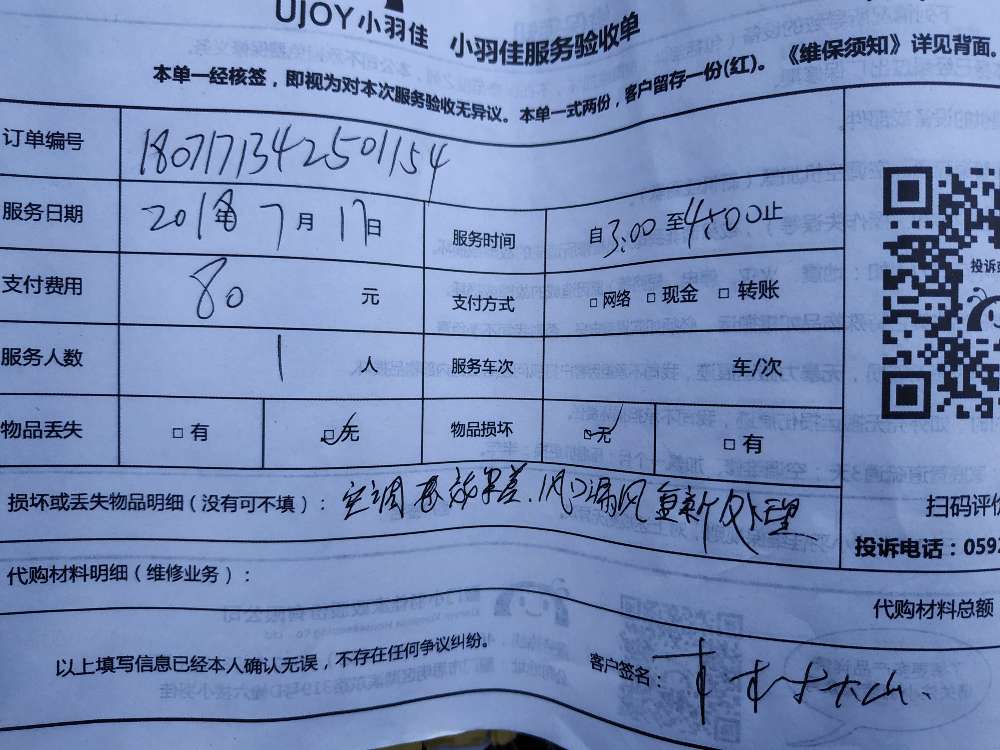 UJOY小羽佳 小羽佳服务验收单
本单一经核签，即视为对本次服务验收无异议。本单一式两份，客户留存一份(红)。《维保须知》详见背面。
订单编号 1807171342501154
服务日期 2018年 7月 17日 服务时间 自3:00至4:00止
支付费用 80 元 支付方式 □网络 □现金 □转账
服务人数 1 人 服务车次 车/次
物品丢失 □有 ☑无 物品损坏 ☑无 □有
损坏或丢失物品明细（没有可不填）： 空调 效果差.风口漏风重新处理
扫码评价
投诉电话：0592
代购材料明细（维修业务）：
代购材料总额
以上填写信息已经本人确认无误，不存在任何争议纠纷。
客户签名：